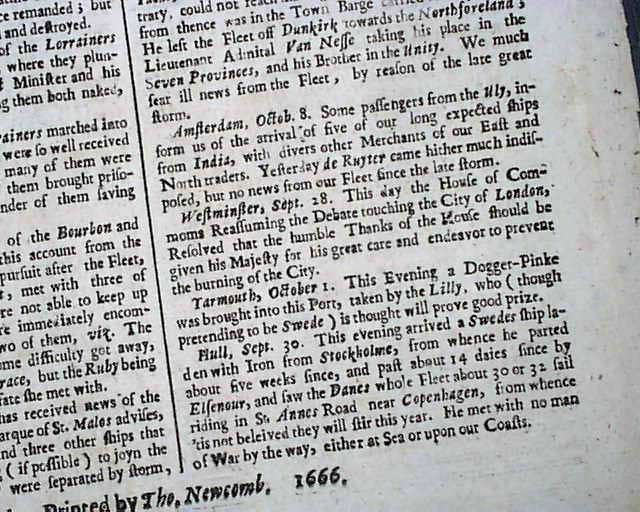 e remanded; but
and destroyed.
of the Lorrainers
where they plun-
Minister and his
g them both naked,
rainers marched into
were so well received
many of them were
them brought priso-
nder of them saving
of the Bourbon and
this account from the
pursuit after the Fleet,
, met with three of
re not able to keep up
re immediately encom-
wo of them, viz. The
me difficulty got away,
race, but the Ruby being
fate she met with.
has received news of the
arque of St. Malos advises,
nd three other ships that
( if possible ) to joyn the
were separated by storm,
trary, could not reach
from thence was in the Town Barge carried
He left the Fleet off Dunkirk towards the Northforeland;
Lieutenant Admital Van Nesse taking his place in the
Seven Provinces, and his Brother in the Unity. We much
fear ill news from the Fleet, by reason of the late great
storm.
Amsterdam, Octob. 8. Some passengers from the Uly, in-
form us of the arrival of five of our long expected ships
from India, with divers other Merchants of our East and
North traders. Yesterday de Ruyter came hither much indis-
posed, but no news from our Fleet since the late storm.
Westminster, Sept. 28. This day the House of Com-
mons Reassuming the Debate touching the City of London,
Resolved that the humble Thanks of the House should be
given his Majesty for his great care and endeavor to prevent
the burning of the City.
Yarmouth, October 1. This Evening a Dogger-Pinke
was brought into this Port, taken by the Lilly, who ( though
pretending to be Swede ) is thought will prove good prize.
Hull, Sept. 30. This evening arrived a Swedes ship la-
den with Iron from Stockholme, from whence he parted
about five weeks since, and past about 14 daies since by
Elsenour, and saw the Danes whole Fleet about 30 or 32 sail
riding in St. Annes Road near Copenhagen, from whence
'tis not beleived they will stir this year. He met with no man
of War by the way, either at Sea or upon our Coasts.
Printed by Tho. Newcomb. 1666.